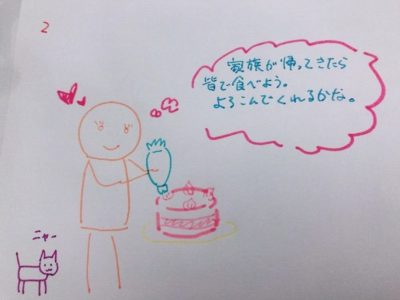 2
家族が帰ってきたら
皆で食べよう。
よろこんでくれるかな。
ニャー